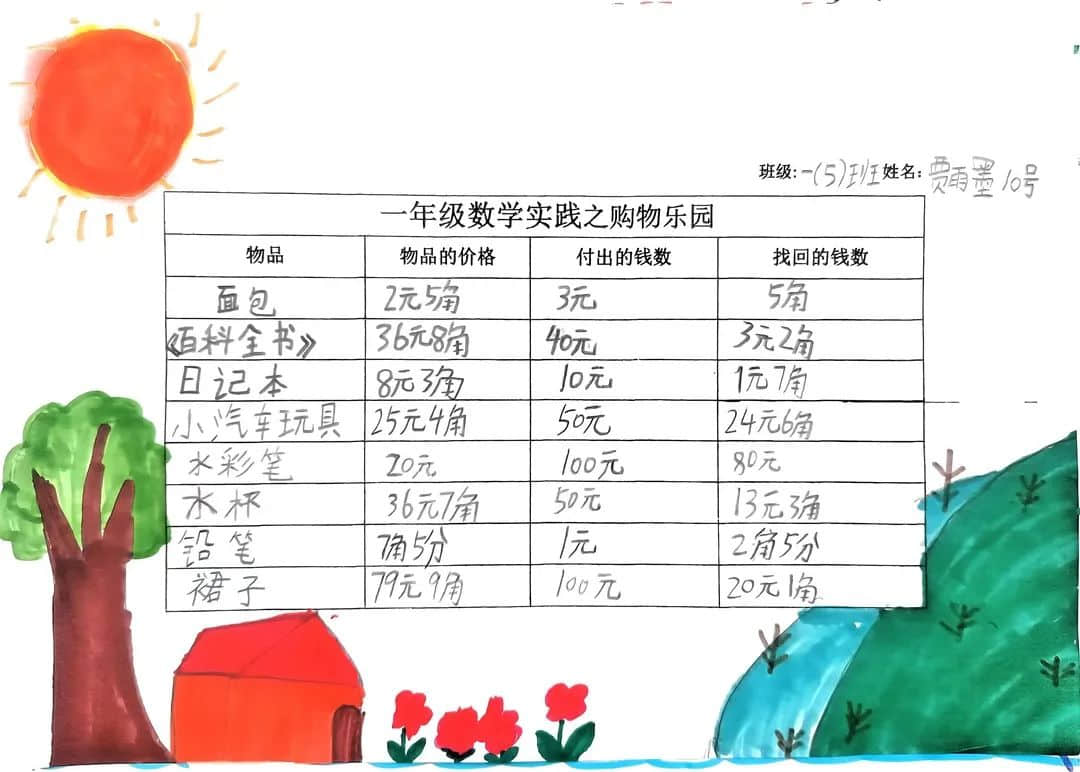 班级:一(5)班姓名:贾雨墨10号
一年级数学实践之购物乐园
物品 物品的价格 付出的钱数 找回的钱数
面包 2元5角 3元 5角
《百科全书》 36元8角 40元 3元2角
日记本 8元3角 10元 1元7角
小汽车玩具 25元4角 50元 24元6角
水彩笔 20元 100元 80元
水杯 36元7角 50元 13元3角
铅笔 7角5分 1元 2角5分
裙子 79元9角 100元 20元1角